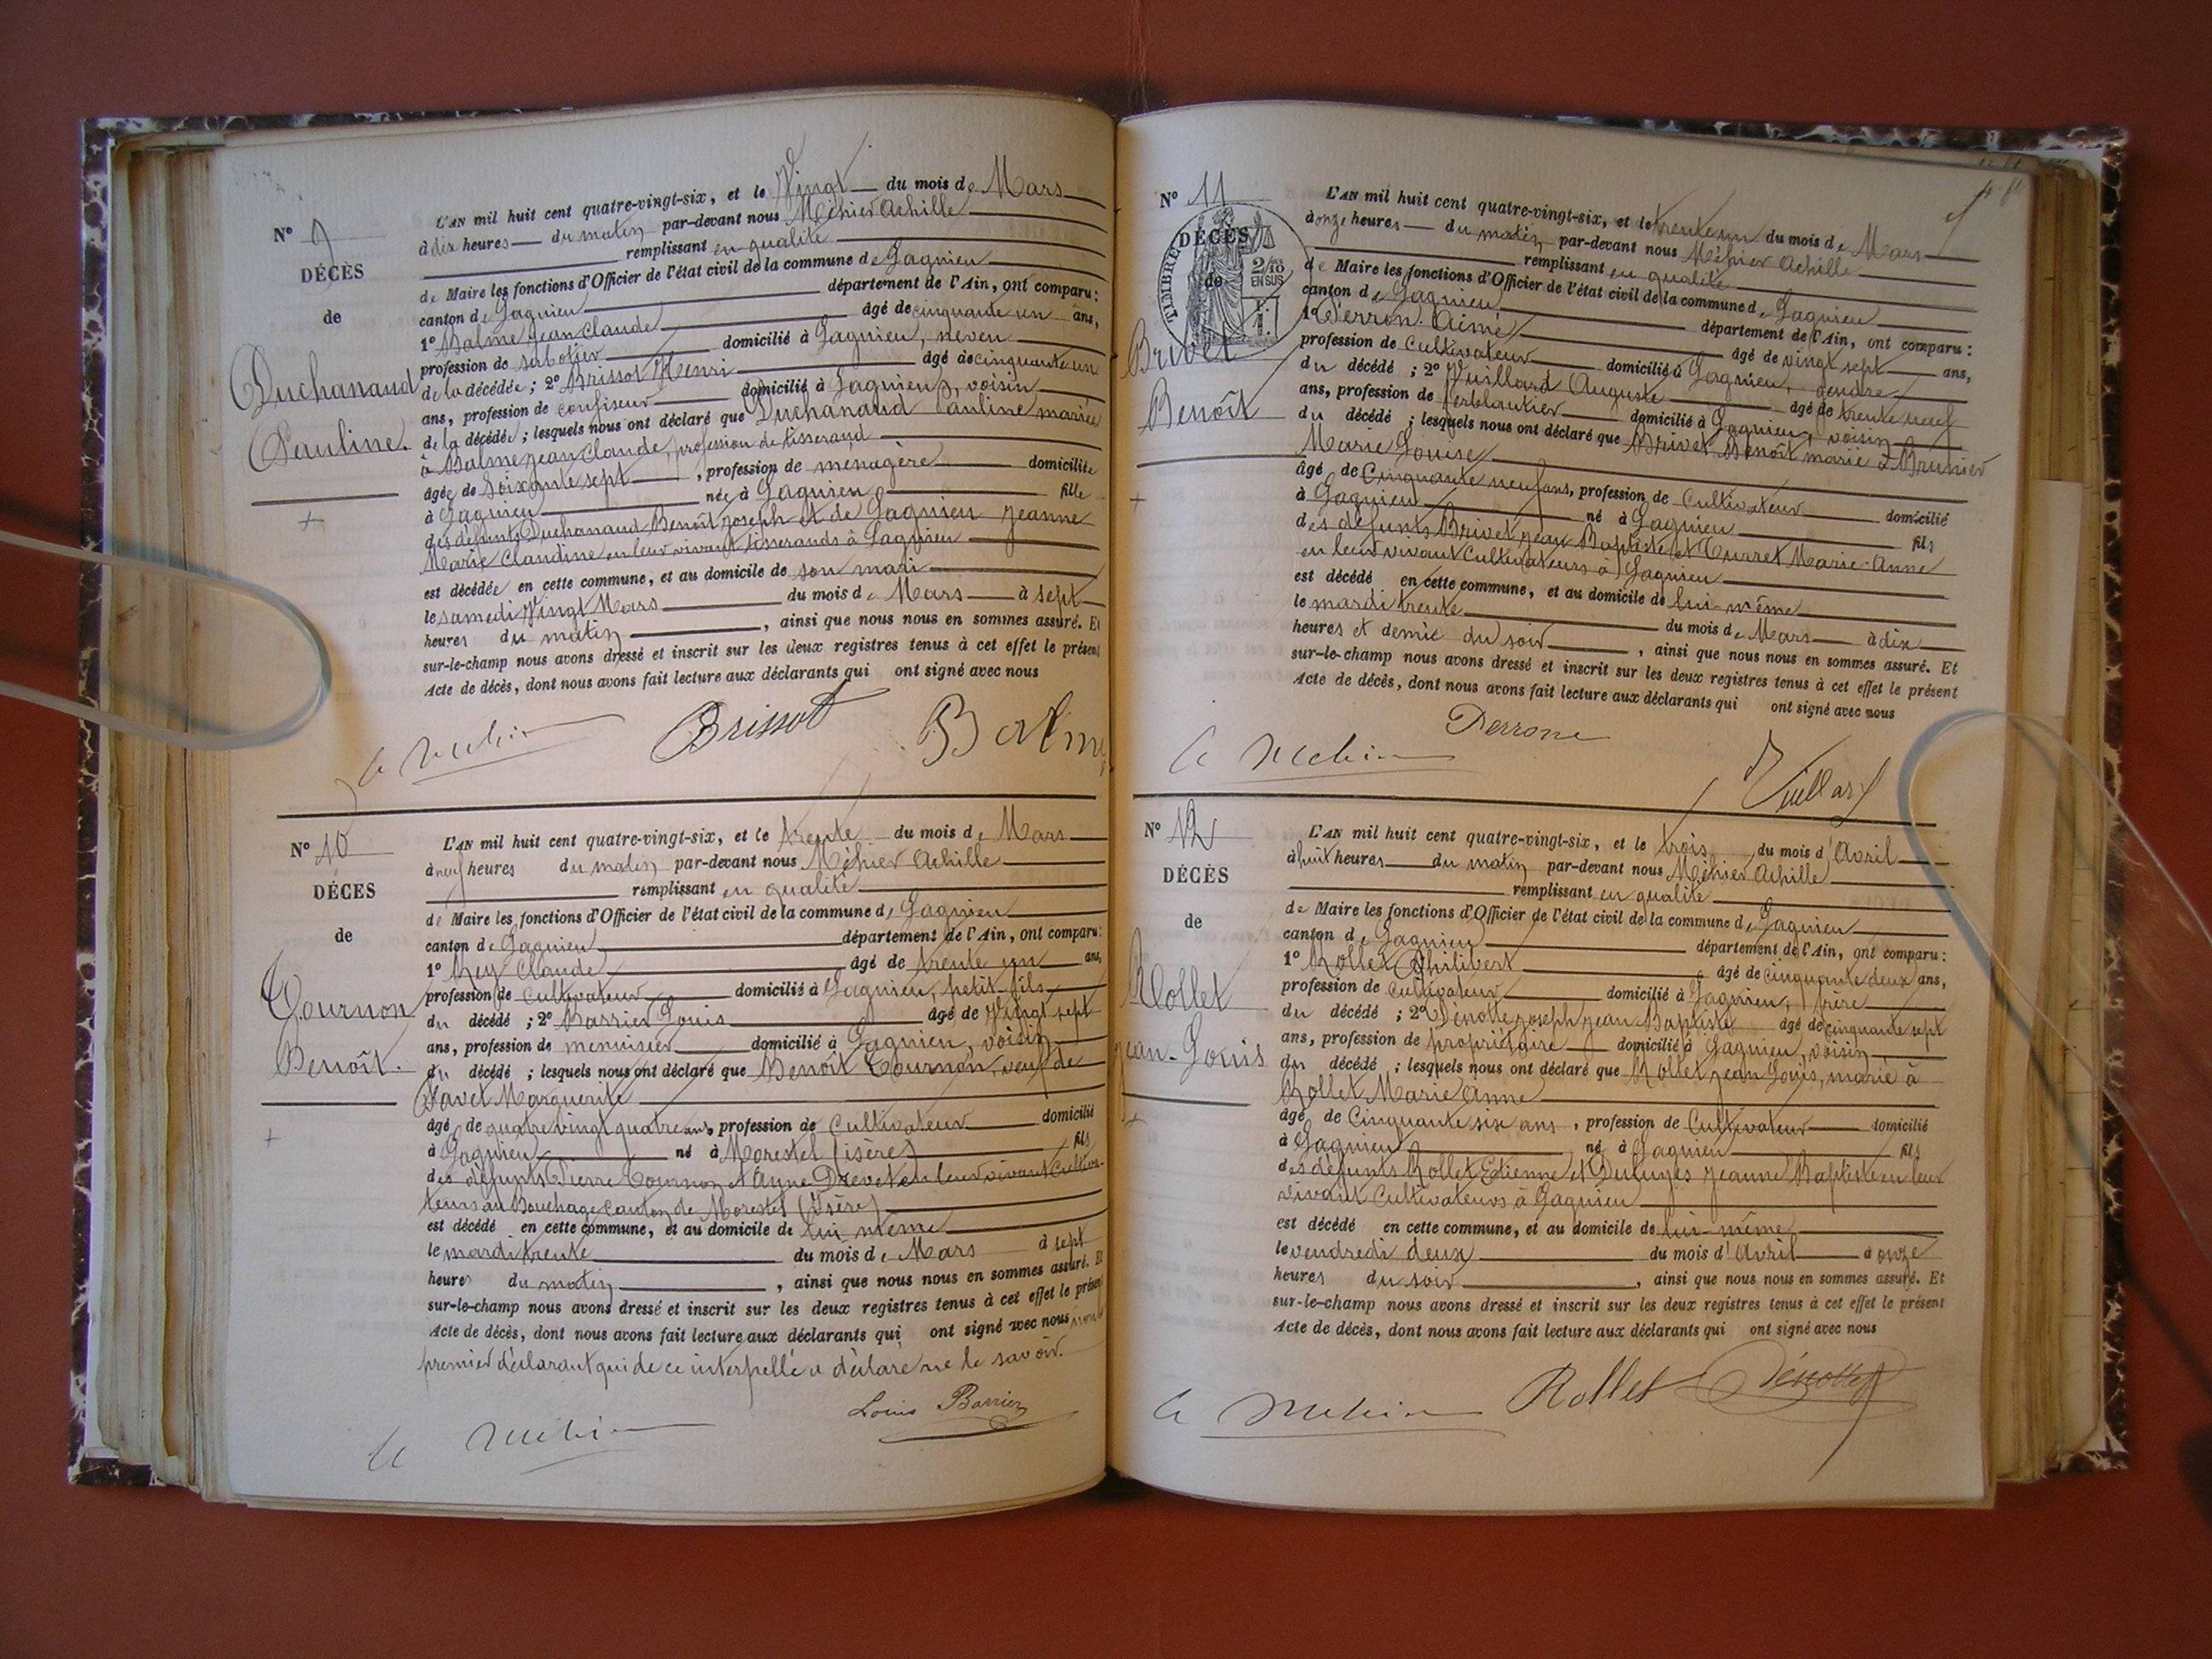 N° 9
DÉCÈS
de
Duchanaud
Pauline.
L'AN mil huit cent quatre-vingt-six, et le Vingt du mois de Mars
à dix heures du matin par-devant nous Méhier Achille
remplissant en qualité
de Maire les fonctions d'Officier de l'état civil de la commune de Lagnieu
canton de Lagnieu département de l'Ain, ont comparu:
1° Balme Jean Claude âgé de cinquante un ans,
profession de sabotier domicilié à Lagnieu, neveu
de la décédée; 2° Brissot Henri âgé de cinquante un
ans, profession de confiseur domicilié à Lagnieu, voisin
de la décédée; lesquels nous ont déclaré que Duchanaud Pauline mariée
à Balme Jean Claude, profession de tisserand
âgée de Soixante sept, profession de ménagère domiciliée
à Lagnieu née à Lagnieu fille
des défunts Duchanaud Benoît Joseph et de Lagnieu Jeanne
Marie Claudine en leur vivant tisserands à Lagnieu
est décédée en cette commune, et au domicile de son mari
le samedi Vingt Mars du mois de Mars à sept
heures du matin, ainsi que nous nous en sommes assuré. Et
sur-le-champ nous avons dressé et inscrit sur les deux registres tenus à cet effet le présent
Acte de décès, dont nous avons fait lecture aux déclarants qui ont signé avec nous
Brissot Balme
N° 10
DÉCES
de
Tournon
Benoît.
L'AN mil huit cent quatre-vingt-six, et le trente du mois de Mars
à neuf heures du matin par-devant nous Méhier Achille
remplissant en qualité
de Maire les fonctions d'Officier de l'état civil de la commune de Lagnieu
canton de Lagnieu département de l'Ain, ont comparu:
1° Rey Claude âgé de trente un ans,
profession de Cultivateur domicilié à Lagnieu, petit-fils
du décédé; 2° Barrier Louis âgé de Vingt sept
ans, profession de menuisier domicilié à Lagnieu, voisin
du décédé; lesquels nous ont déclaré que Benoît Tournon, veuf de
Marguerite
âgé de quatre vingt quatre ans, profession de Cultivateur domicilié
à Lagnieu né à Morestel (isère) fils
des défunts Pierre Tournon et Anne Drevet en leur vivant cultiva-
teurs au Bouchage canton de Morestel (Isère)
est décédé en cette commune, et au domicile de lui même
le mardi trente du mois de Mars à sept
heures du matin, ainsi que nous nous en sommes assuré. Et
sur-le-champ nous avons dressé et inscrit sur les deux registres tenus à cet effet le présent
Acte de décès, dont nous avons fait lecture aux déclarants qui ont signé avec nous
premier déclarant qui de ce interpellé a déclaré ne le savoir.
Louis Barrier
N° 11
DÉCÈS
de
TIMBRE
2/10
EN SUS
Brivet
Benoît
L'AN mil huit cent quatre-vingt-six, et le trente un du mois de Mars
à onze heures du matin par-devant nous Méhier Achille
remplissant en qualité
de Maire les fonctions d'Officier de l'état civil de la commune de Lagnieu
canton de Lagnieu département de l'Ain, ont comparu:
1° Perron Aimé âgé de vingt sept ans,
profession de Cultivateur domicilié à Lagnieu, gendre
du décédé; 2° Vuillard Auguste âgé de trente neuf
ans, profession de ferblantier domicilié à Lagnieu, voisin
du décédé; lesquels nous ont déclaré que Brivet Benoît marié à Brunier
Marie Louise
âgé de Cinquante neuf ans, profession de Cultivateur domicilié
à Lagnieu né à Lagnieu fils
des défunts Brivet Jean Baptiste et Marie-Anne
en leur vivant Cultivateurs à Lagnieu
est décédé en cette commune, et au domicile de lui-même
le mardi trente du mois de Mars à dix
heures et demie du soir, ainsi que nous nous en sommes assuré. Et
sur-le-champ nous avons dressé et inscrit sur les deux registres tenus à cet effet le présent
Acte de décès, dont nous avons fait lecture aux déclarants qui ont signé avec nous
Perrone
Vuillard
N° 12
DÉCÈS
de
Rollet
Jean-Louis
L'AN mil huit cent quatre-vingt-six, et le trois du mois d'Avril
à huit heures du matin par-devant nous Méhier Achille
remplissant en qualité
de Maire les fonctions d'Officier de l'état civil de la commune de Lagnieu
canton de Lagnieu département de l'Ain, ont comparu:
1° Rollet Philibert âgé de cinquante deux ans,
profession de Cultivateur domicilié à Lagnieu, frère
du décédé; 2° Denotte Joseph Jean Baptiste âgé de cinquante sept
ans, profession de propriétaire domicilié à Lagnieu, voisin
du décédé; lesquels nous ont déclaré que Rollet Jean Louis, marié à
Rollet Marie Anne
âgé de Cinquante six ans, profession de Cultivateur domicilié
à Lagnieu, né à Lagnieu fils
des défunts Rollet Etienne et Jeanne Baptiste en leur
vivant Cultivateurs à Lagnieu
est décédé en cette commune, et au domicile de lui-même
le vendredi deux du mois d'Avril à onze
heures du soir, ainsi que nous nous en sommes assuré. Et
sur-le-champ nous avons dressé et inscrit sur les deux registres tenus à cet effet le présent
Acte de décès, dont nous avons fait lecture aux déclarants qui ont signé avec nous
Rollet Dénotte